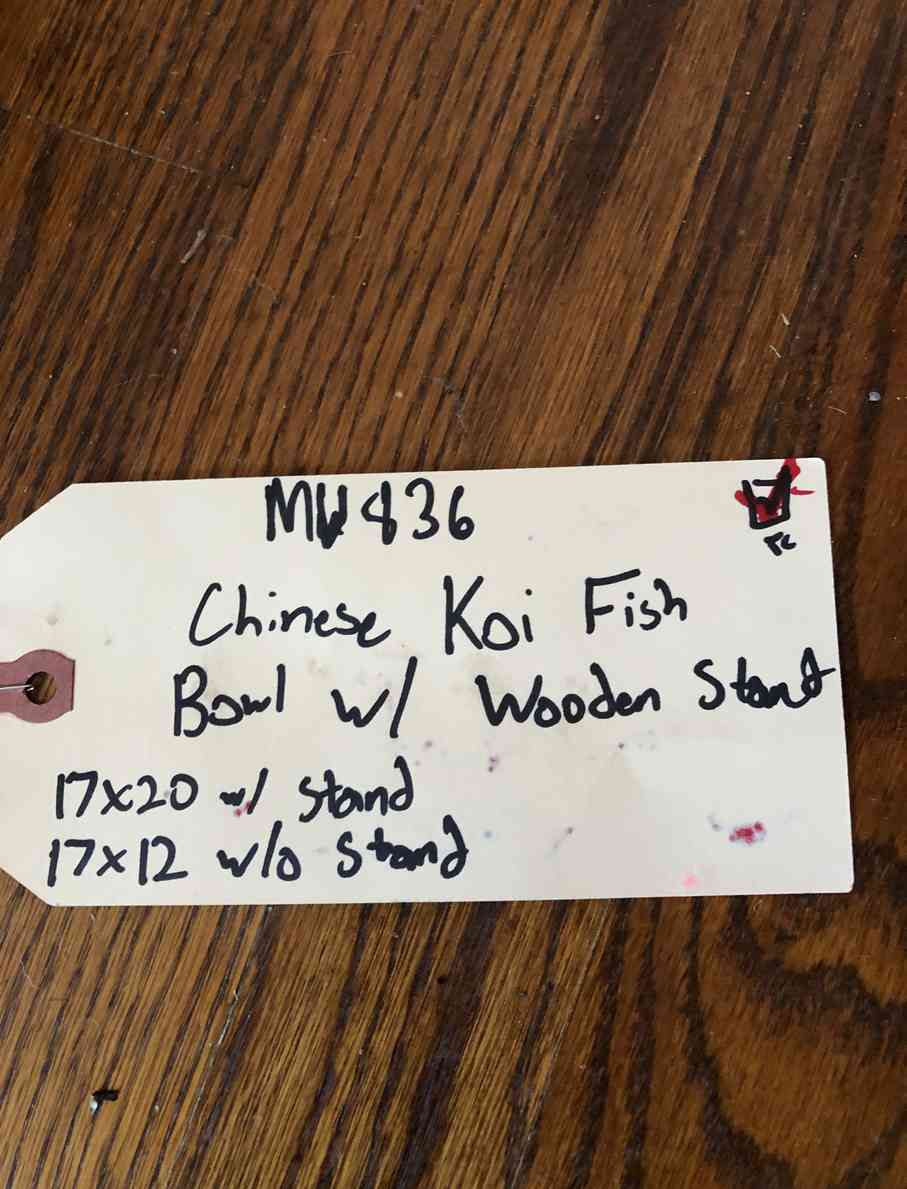 MV836
Chinese Koi Fish
Bowl w/ Wooden Stand
17x20 w/ stand
17x12 w/o stand